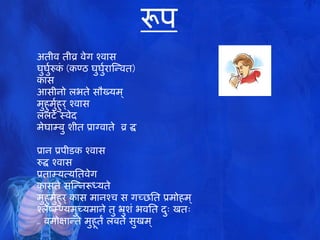 रूप
अतीव तीव्र वेग श्वास
घुर्घुरुकं (कण्ठ घुर्घुरान्वित)
कास
आसीनो लभते सौख्यम्
मुहुर्मुहुर् श्वास
ललटे स्वेद
मेघाम्बु शीत प्राग्वाते
प्रान प्रपीडक श्वास
रुद्ध श्वास
प्रताम्यत्यतिवेग
कासते सन्निरूध्यते
मुहुर्मुहुर् कास मानश्च स गच्छति प्रमोहम्
श्लेष्मण्यमुच्यमाने तु भ्रुशं भवति दुः खतः
मुहूर्तं लवते सुखम्